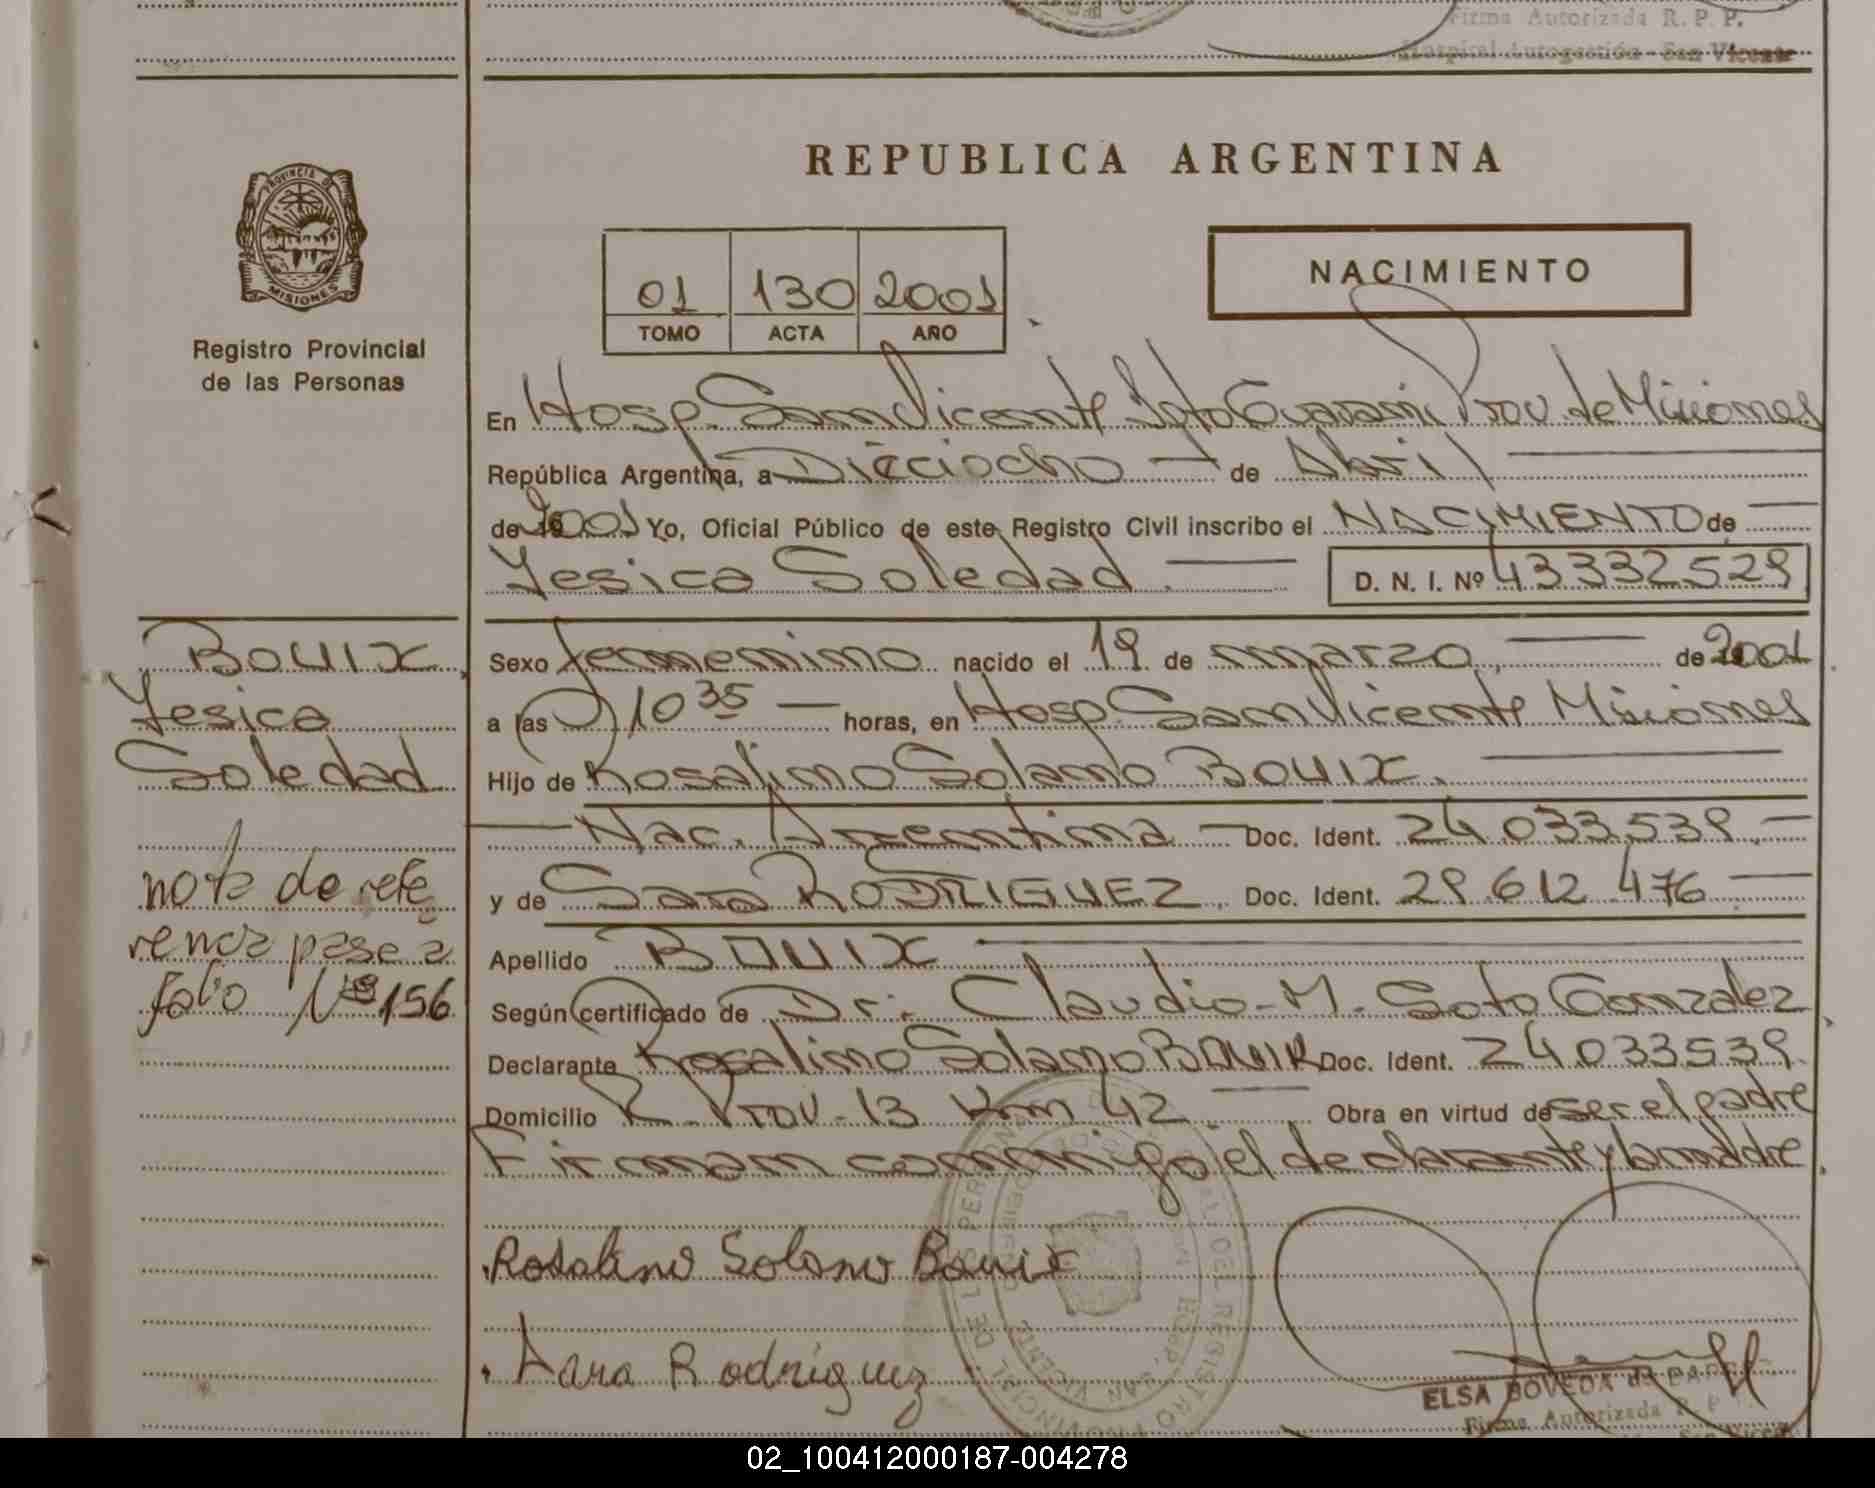 Firma Autorizada R. P. P.
Hospital Autogestión - San Vicente
REPUBLICA ARGENTINA
PROVINCIA DE
MISIONES
Registro Provincial
de las Personas
01 130 2001
TOMO ACTA AÑO
NACIMIENTO
En Hosp. San Vicente Dpto Guarani Prov. de Misiones
República Argentina, a Dieciocho — de Abril
de 2001 Yo, Oficial Público de este Registro Civil inscribo el NACIMIENTO de
Yesica Soledad. D. N. I. Nº 43332529
BOUIX
Yesica
Soledad
nota de refe
rencia pase a
folio Nº 156
Sexo femenino nacido el 19 de marzo, de 2001
a las 10 35 — horas, en Hosp. San Vicente Misiones
Hijo de Rosalino Solano BOUIX.
— Nac. Argentina — Doc. Ident. 24.033.539. —
y de Sara RODRIGUEZ. Doc. Ident. 29.612.476 —
Apellido BOUIX
Según certificado de Dr. Claudio M. Soto Gonzalez
Declarante Rosalino Solano BOUIX Doc. Ident. 24.033.539.
Domicilio R. Prov. 13 Km 42 Obra en virtud de ser el padre
Firman conmigo el declarante y la madre.
Rosalino Solano Bouix
Sara Rodriguez
ELSA BOVEDA de
Firma Autorizada R. P. P.
San Vicente
02_100412000187-004278